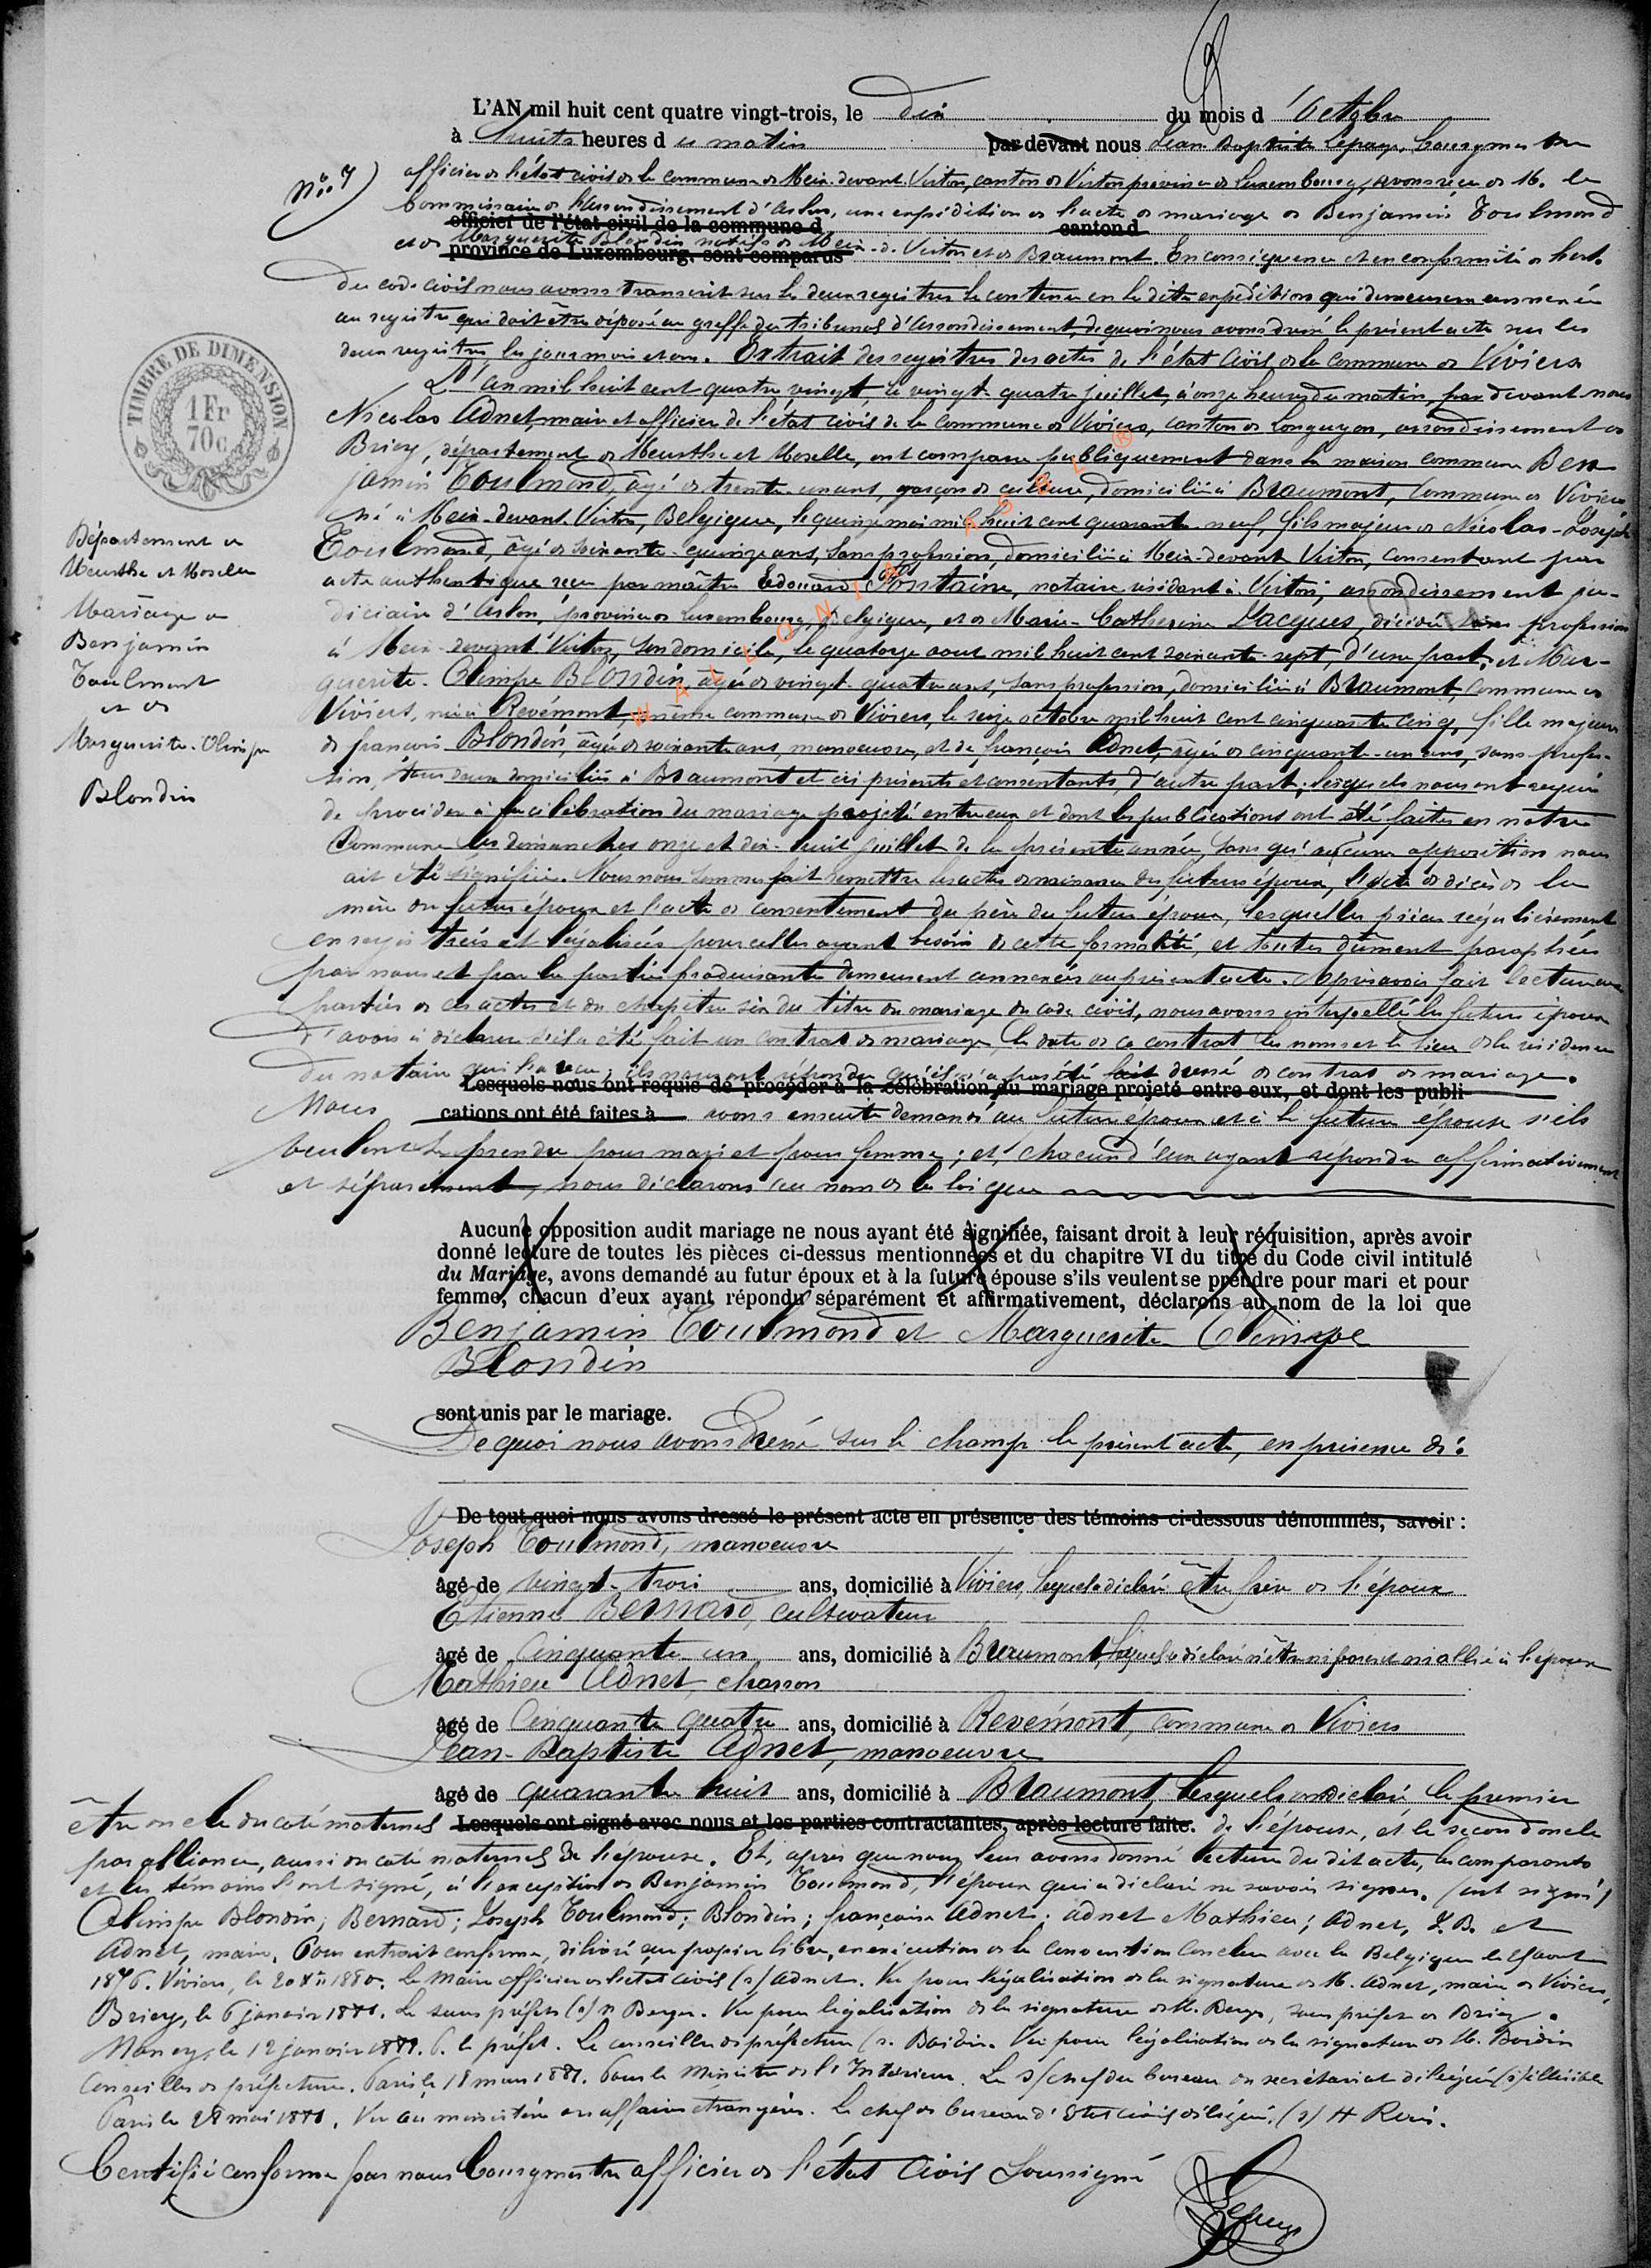 L'AN mil huit cent quatre vingt-trois, le dix du mois d'Octobre
à huit heures du matin par devant nous Jean Baptiste Lepage, bourgmestre
N° 7
officier de l'état civil de la commune de Meix-devant-Virton, canton de Virton province de Luxembourg, avons reçu de M. le
Commissaire de l'arrondissement d'Arlon, une expédition de l'acte de mariage de Benjamin Toulmond
officier de l'état civil de la commune d canton d
et de Marguerite Blondin natifs de Meix-d-Virton et de Braumont. En conséquence et en conformité de l'art.
province de Luxembourg, sont comparus
du code civil nous avons transcrit sur les deux registres le contenu en la dite expédition qui demeurera annexée
au registre qui doit être déposé au greffe du tribunal d'arrondissement, de quoi nous avons dressé le présent acte sur les
deux registres les jour mois et an. Extrait des registres des actes de l'état civil de la commune de Viviers
L'an mil huit cent quatre vingt, le vingt-quatre juillet, à onze heures du matin, par devant nous
Nicolas Adnet, maire et officier de l'état civil de la commune de Viviers, canton de Longuyon, arrondissement de
Briey, département de Meurthe et Moselle, ont comparu publiquement dans la maison commune Ben-
jamin Toulmond, âgé de trente-un ans, garçon de culture, domicilié à Braumont, commune de Viviers
né à Meix-devant-Virton, Belgique, le quinze mai mil huit cent quarante-neuf, fils majeur de Nicolas-Joseph
Toulmond, âgé de soixante-quinze ans, sans profession, domicilié à Meix-devant-Virton, consentant par
acte authentique reçu par maître Edouard Fontaine, notaire résidant à Virton, arrondissement ju-
diciaire d'Arlon, province de Luxembourg, Belgique, et de Marie-Catherine Jacques, décédée sans profession
à Meix-devant-Virton, son domicile, le quatorze aout mil huit cent soixante-sept, d'une part; et Mar-
guerite-Olimpe Blondin, âgée de vingt-quatre ans, sans profession, domiciliée à Braumont, commune de
Viviers, née à Revémont, même commune de Viviers, le seize octobre mil huit cent cinquante cinq, fille majeure
de françois Blondin, âgé de soixante ans, manoeuvre, et de françoise Adnet, âgée de cinquante-un ans, sans profes-
sion, tous deux domiciliés à Braumont et ici présents et consentants d'autre part; lesquels nous ont requis
de procéder à la célébration du mariage projeté entre eux et dont les publications ont été faites en notre
Commune les dimanches onze et dix-huit juillet de la présente année, sans qu'aucune opposition nous
ait été signifiée. Nous nous sommes fait remettre les actes de naissance des futurs époux, l'acte de décès de la
mère du futur époux et l'acte de consentement du père du futur époux, lesquelles pièces régulièrement
enregistrées et légalisées pour celles ayant besoin de cette formalité, et toutes dûment paraphées
par nous et par la partie produisante demeurent annexées au présent acte. Après avoir fait lecture aux
parties de ces actes et du chapitre six du titre du mariage du code civil, nous avons interpellé les futurs époux
d'avoir à déclarer s'il a été fait un contrat de mariage, la date de ce contrat les noms et le lieu de la résidence
du notaire qui l'a reçu; ils nous ont répondu qu'il n'a pas été fait dressé de contrat de mariage.
Lesquels nous ont requis de procéder à la célébration du mariage projeté entre eux, et dont les publi-
cations ont été faites à
Nous avons ensuite demandé au futur époux et à la future épouse s'ils
veulent se prendre pour mari et pour femme; et, chacun d'eux ayant répondu affirmativement
et séparément, nous déclarons au nom de la loi que
Aucune opposition audit mariage ne nous ayant été signifiée, faisant droit à leur réquisition, après avoir
donné lecture de toutes les pièces ci-dessus mentionnées et du chapitre VI du titre du Code civil intitulé
du Mariage, avons demandé au futur époux et à la future épouse s'ils veulent se prendre pour mari et pour
femme, chacun d'eux ayant répondu séparément et affirmativement, déclarons au nom de la loi que
Benjamin Toulmond et Marguerite Olimpe
Blondin
sont unis par le mariage.
De quoi nous avons dressé sur le champ le présent acte, en présence de:
De tout quoi nous avons dressé le présent acte en présence des témoins ci-dessous dénommés, savoir :
Joseph Toulmond, manoeuvre
âgé de vingt-trois ans, domicilié à Viviers, lequel a déclaré être frère de l'époux
Etienne Bernard, cultivateur
âgé de Cinquante un ans, domicilié à Braumont, lequel a déclaré n'être ni parent ni allié à l'époux
Mathieu Adnet, charron
âgé de Cinquante quatre ans, domicilié à Revémont, commune de Viviers
Jean-Baptiste Adnet, manoeuvre
âgé de quarante huit ans, domicilié à Braumont, lesquels ont déclaré le premier
être oncle du coté maternel Lesquels ont signé avec nous et les parties contractantes, après lecture faite. de l'épouse, et le second oncle
par alliance, aussi du coté maternel de l'épouse. Et, après que nous leur avons donné lecture du dit acte, les comparants
et les témoins l'ont signé, à l'exception de Benjamin Toulmond, l'époux qui a déclaré ne savoir signer. (ont signé)
Olimpe Blondin; Bernard; Joseph Toulmond; Blondin; françoise Adnet; Adnet Mathieu; Adnet, J. B. et
Adnet, maire. Pour extrait conforme, délivré sur papier libre, en exécution de la convention conclue avec la Belgique le 25 aout
1876. Viviers, le 20 Xbre 1880. Le Maire officier de l'état civil (s) Adnet. Vu pour légalisation de la signature de M. Adnet, maire de Viviers,
Briey, le 6 janvier 1881. Le sous préfet (s) Berger. Vu pour légalisation de la signature de M. Berger, sous préfet de Briey.
Nancy, le 12 janvier 1881. P. le préfet. Le conseiller de préfecture (s. Boidin. Vu pour légalisation de la signature de M. Boidin
Conseiller de préfecture. Paris, le 18 mars 1881. Pour le Ministre de l'Intérieur. Le s/chef du bureau du secrétariat délégué (s) illisible
Paris le 28 mai 1881. Vu au ministère des affaires étrangères. Le chef de bureau d'état civil délégué, (s) H
Certifié conforme par nous bourgmestre officier de l'état civil soussigné
Lepage
TIMBRE DE DIMENSION
1 Fr
70c
Département de
Meurthe et Moselle
Mariage de
Benjamin
Toulmont
et de
Marguerite-Olimpe
Blondin